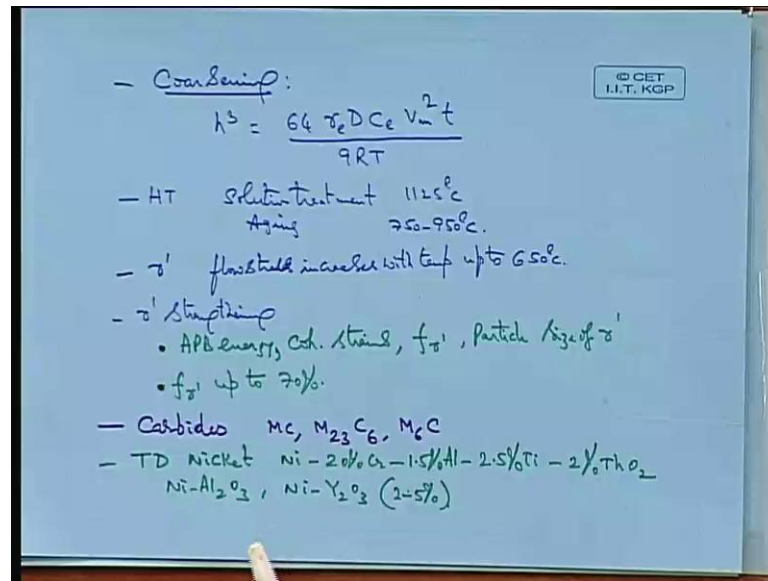 - Coarsening:
© CET
I.I.T. KGP
h³ = 64 γe D Ce Vm² t
9RT
- HT Solution treatment 1125°C
Aging 750-950°C.
- γ' flow stress increases with temp up to 650°C.
- γ' Strengthening
• APB energy, Coh. strains, fγ', Particle size of γ'
• fγ' up to 70%.
- Carbides MC, M₂₃C₆, M₆C
- TD Nickel Ni-20%Cr-1.5%Al-2.5%Ti-2%ThO₂
Ni-Al₂O₃, Ni-Y₂O₃ (2-5%)